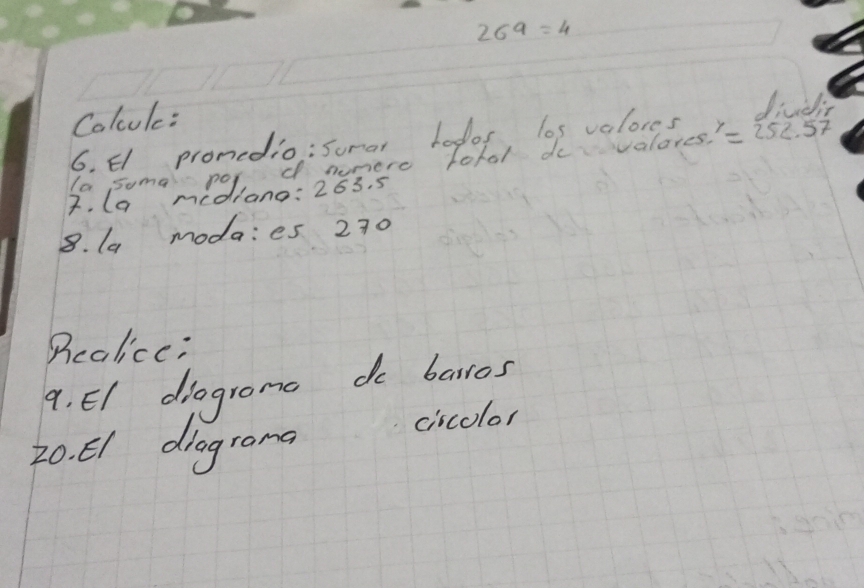 269 = 4
Calcule:
6. El promedio: sumar todos los valores y dividir
la suma por el numero total de valores. = 252.57
7. la mediana: 263.5
8. la moda: es 270
Realice:
9. El diagrama de barras
10. El diagrama circular